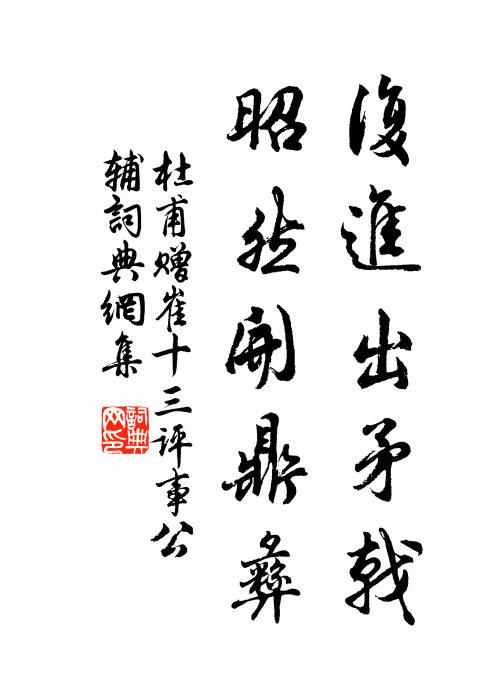 復進出矛戟
昭然開鼎彝
杜甫赠崔十三评事公
辅詞典網集
詞典网印